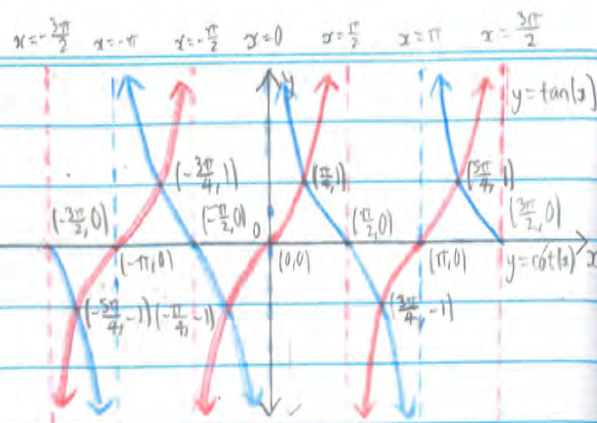 x=-3π/2 x=-π x=-π/2 x=0 x=π/2 x=π x=3π/2
y
y=tan(x)
(-3π/4, 1) (π/4, 1) (5π/4, 1)
(-3π/2, 0) (-π/2, 0) 0 (π/2, 0) (3π/2, 0)
(-π, 0) (0,0) (π, 0) y=cot(x) x
(-5π/4, -1) (-π/4, -1) (3π/4, -1)